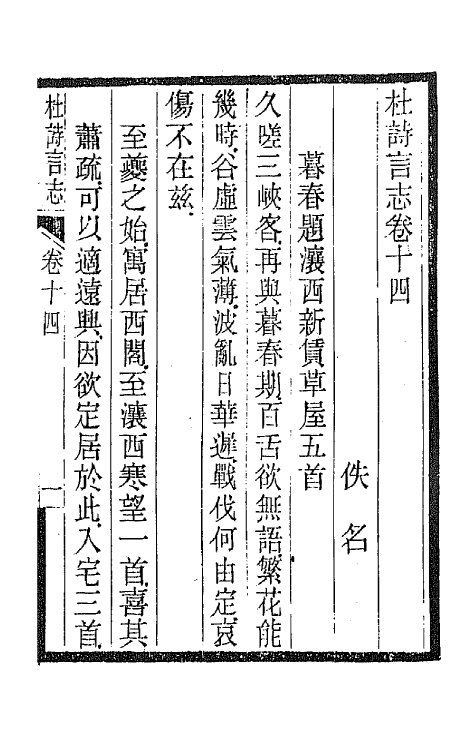 杜詩言志卷十四
佚名
暮春題瀼西新賃草屋五首
久嗟三峽客再與暮春期百舌欲無語繁花能
幾時谷虛雲氣薄波亂日華遲戰伐何由定哀
傷不在茲
至夔之始寓居西閣至瀼西寒望一首喜其
蕭疏可以適遠興因欲定居於此入宅三首
杜詩言志
卷十四
一